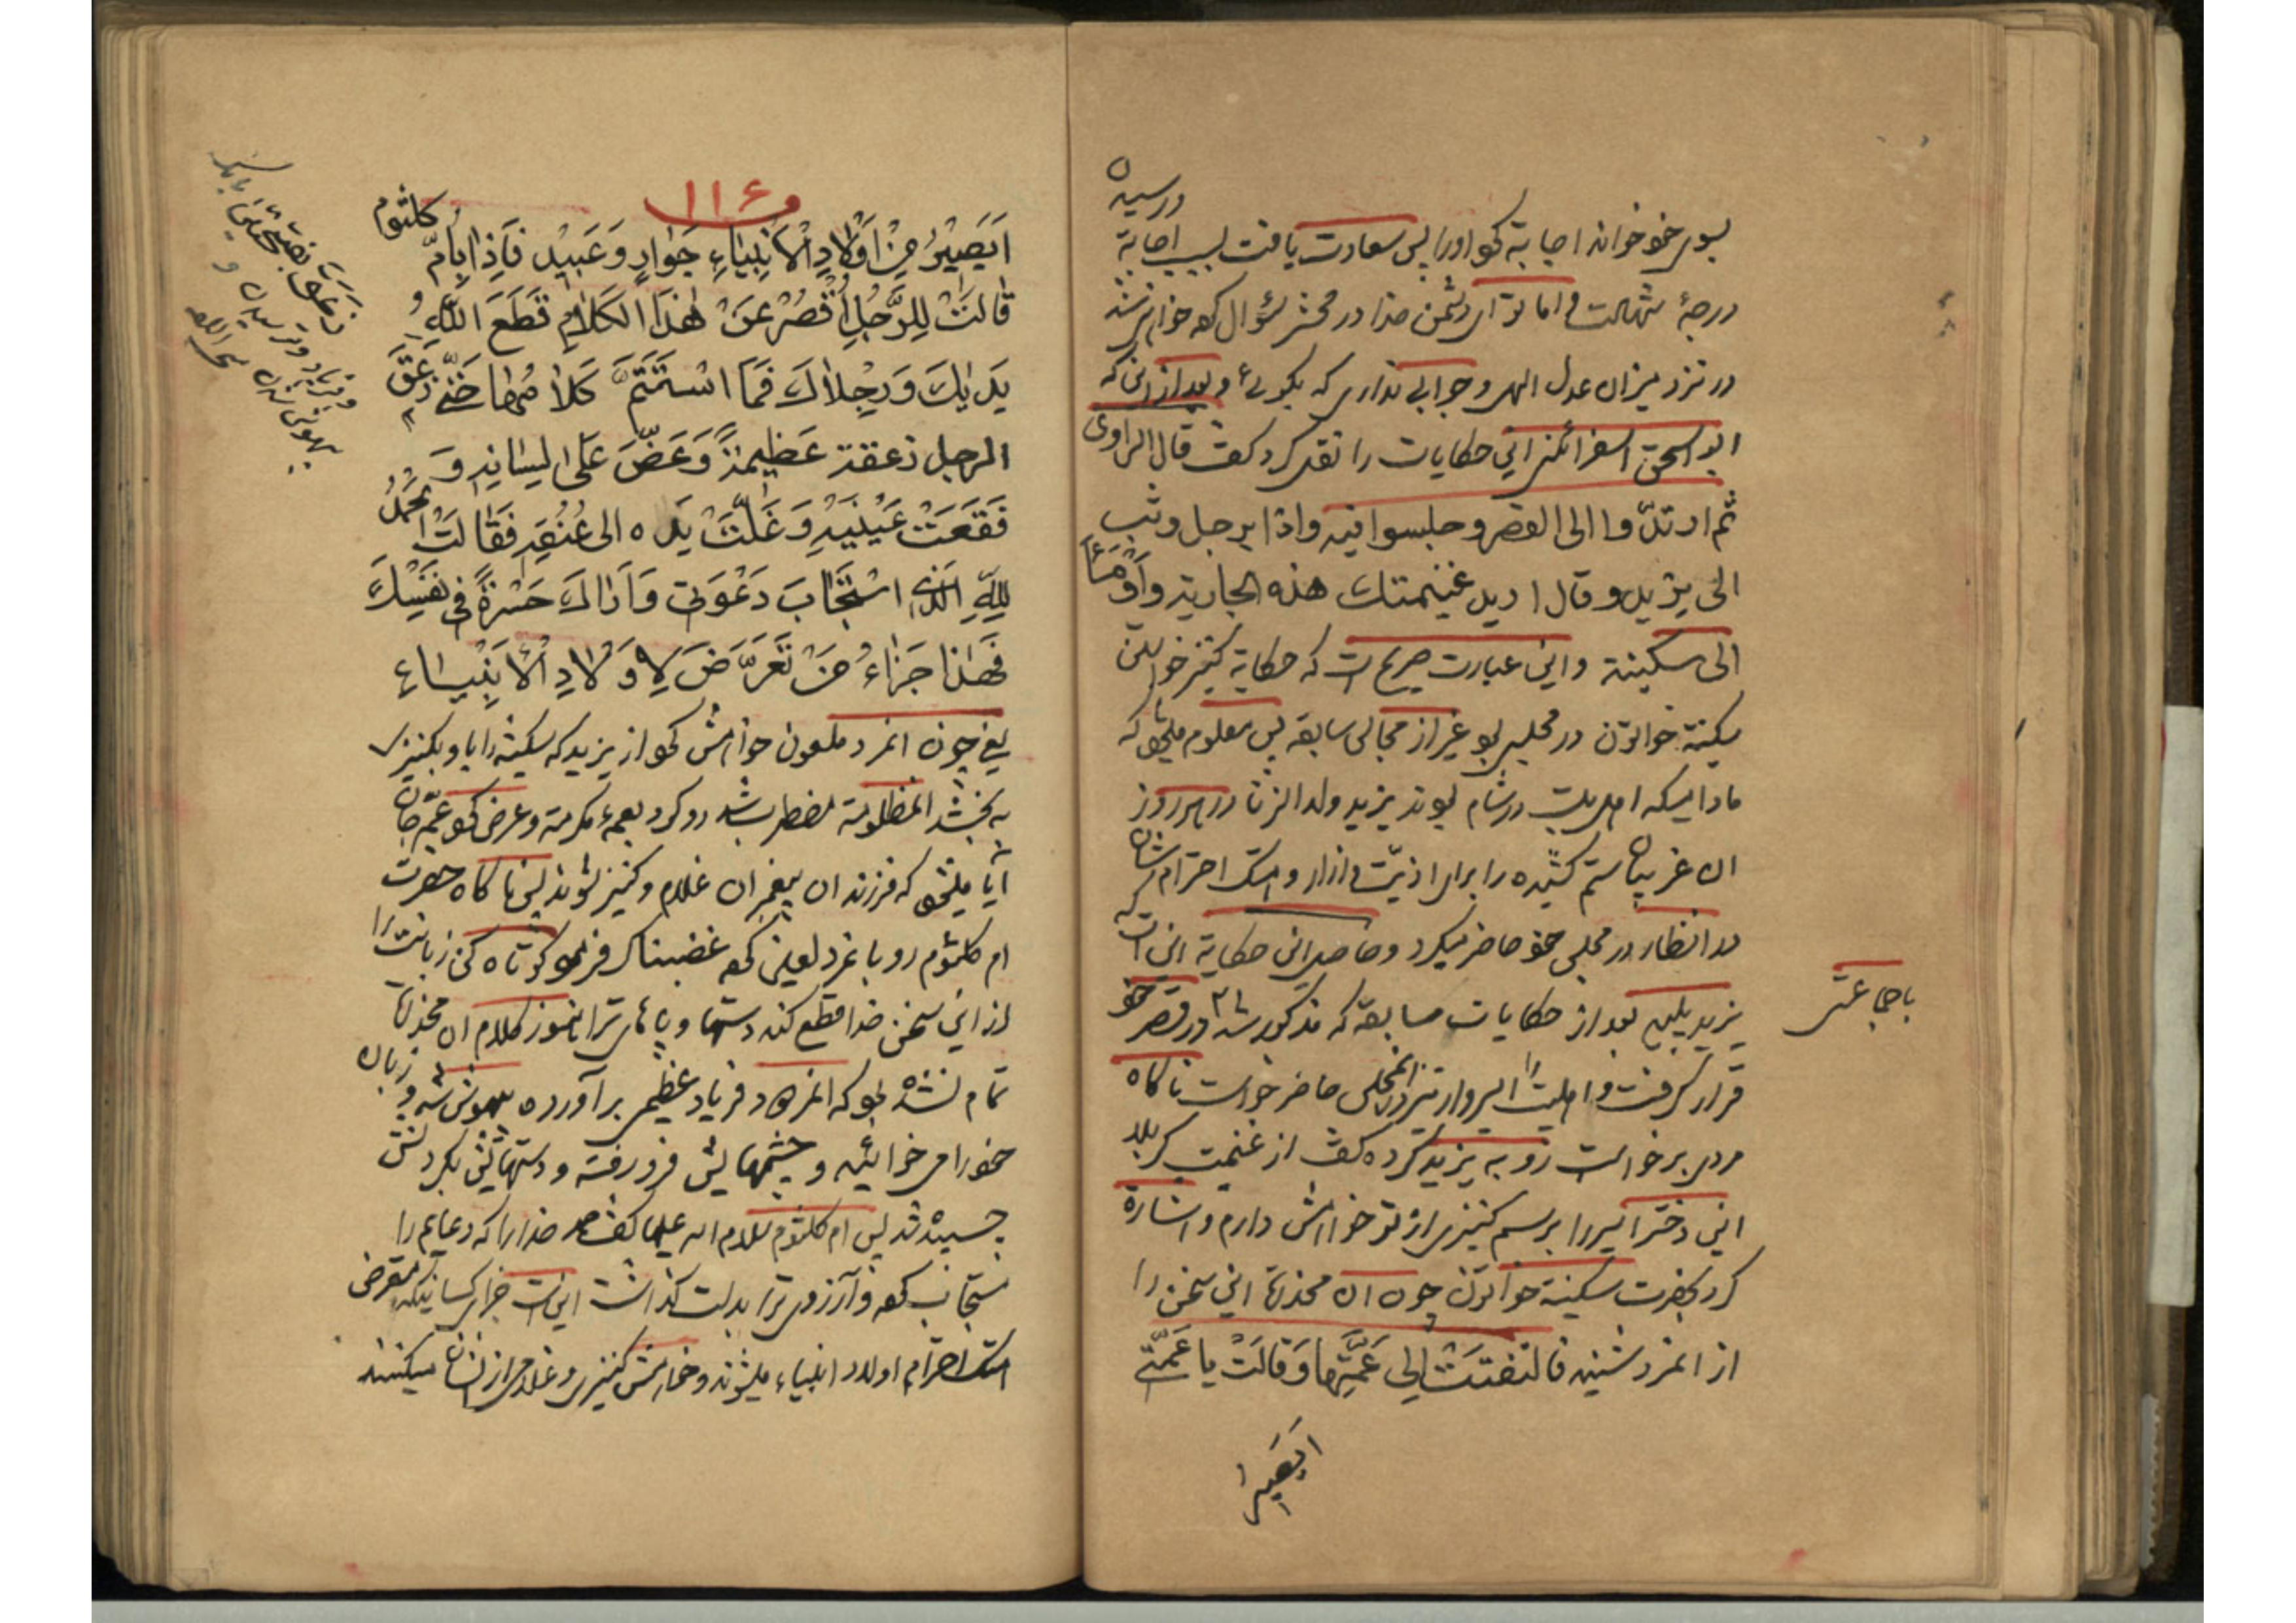 بسوی خود خوانده اجابة کرد او را پس سعادت یافت بسبب اجابة
ورسیده
درجۀ شهادت و اما تو ای دشمن خدا در محشر سؤال کرده خواهی شد
در نزد میزان عدل الهی و جوابی نداری که بگوئی و بعد از اینکه
ابو اسحق اسفرائنی این حکایات را نقل کرد گفت قال الراوی
ثم ارتدّوا الی القصر وجلسوا فیه واذا برجل وثب
الی یزید وقال ارید غنیمتک هذه الجاریة وَاَوْمَأَ
الی سکینة و این عبارت صریح است که حکایة کنیز خواستن
سکینة خواتون در مجلس بود غیر از مجالس سابقه پس معلوم میشود که
مادامیکه اهل بیت در شام بودند یزید ولد الزنا در هر روز
ان غریبان ستم کشیده را برای اذیّت و ازار و هتک احترام ایشان
در انظار در مجلس خود حاضر میکرد و حاصل این حکایة این است که
یزید پلید بعد از حکایات سابقه که مذکور شد در قصر خود
باجماعتش
قرار گرفت و اهلبیت را اسیروار نیز در انمجلس حاضر خواست ناکاه
مردی برخواست رو به یزید کرده گفت از غنیمت کربلا
این دختر اسیر را برسم کنیزی از تو خواهش دارم و اشارة
کرد بحضرت سکینة خواتون چون ان مخدرة این سخن را
از انمرد شنید فَالْتَفَتَتْ اِلی عَمَّتِهَا وَقَالَتْ یا عَمَّتی
ایصیر
۱۱۶
اَیَصِیْرُ مِنْ اَوْلَادِ الْاَنْبِیَاءِ جَوَارٍ وَعَبِیْدٍ فَاِذَا بِاُمّ کلثوم
قَالَتْ لِلرَّجُلِ اُقْصُرْ عَنْ هٰذَا الکَلَامِ قَطَعَ اللّٰهُ
یَدَایْكَ وَرِجْلَاكَ فَمَا اسْتَتَمَّ کَلَامُهَا حَتّٰی زَعَقَ
الرجل زعقة عَظِیمَةً وَعَضَّ عَلَی لِسَانِهِ وَ
فَقَعَتْ عَیْنَیْهِ وَغَلَّتْ یَدَه الی عُنُقِهِ فَقَالَتْ الْحَمْدُ
لِلّٰهِ الَّذِی اسْتَجَابَ دَعْوَتِی وَاَرَاكَ حَسْرَةً فِی نَفْسِكَ
فَهٰذَا جَزَاءُ مَنْ تَعَرَّضَ لِاَوْلَادِ الْاَنْبِیَاءِ
یعنی چون انمرد ملعون خواهش کرد از یزید که سکینه را باو بکنیزی
به بخشد انمظلومة مضطر شد رو کرد بعمۀ مکرمة و عرض کرد عمّه جان
آیا میشود که فرزندان پیغمبران غلام و کنیز بشوند پس ناکاه حضرت
ام کلثوم رو بانمرد لعین کرده غضبناک فرمود کوتاه کن زبانت را
از این سخن خدا قطع کند دستها و پاهای ترا هنوز کلام ان مخدرة
تمام نشده بود که انمرد فریاد عظیمی برآورده بیهوش شد و زبان
خود را می خوائید و چشمهایش فرو رفته و دستهایش بگردنش
چسبیده شد پس ام کلثوم سلام الله علیها گفت حمد خدا را که دعایم را
مستجاب کرده و آرزوی ترا بدلت گذاشت این است جزای کسانیکه متعرض
هتک احترام اولاد انبیاء میشوند و خواهش کنیزی و غلامی از ایشان میکنند